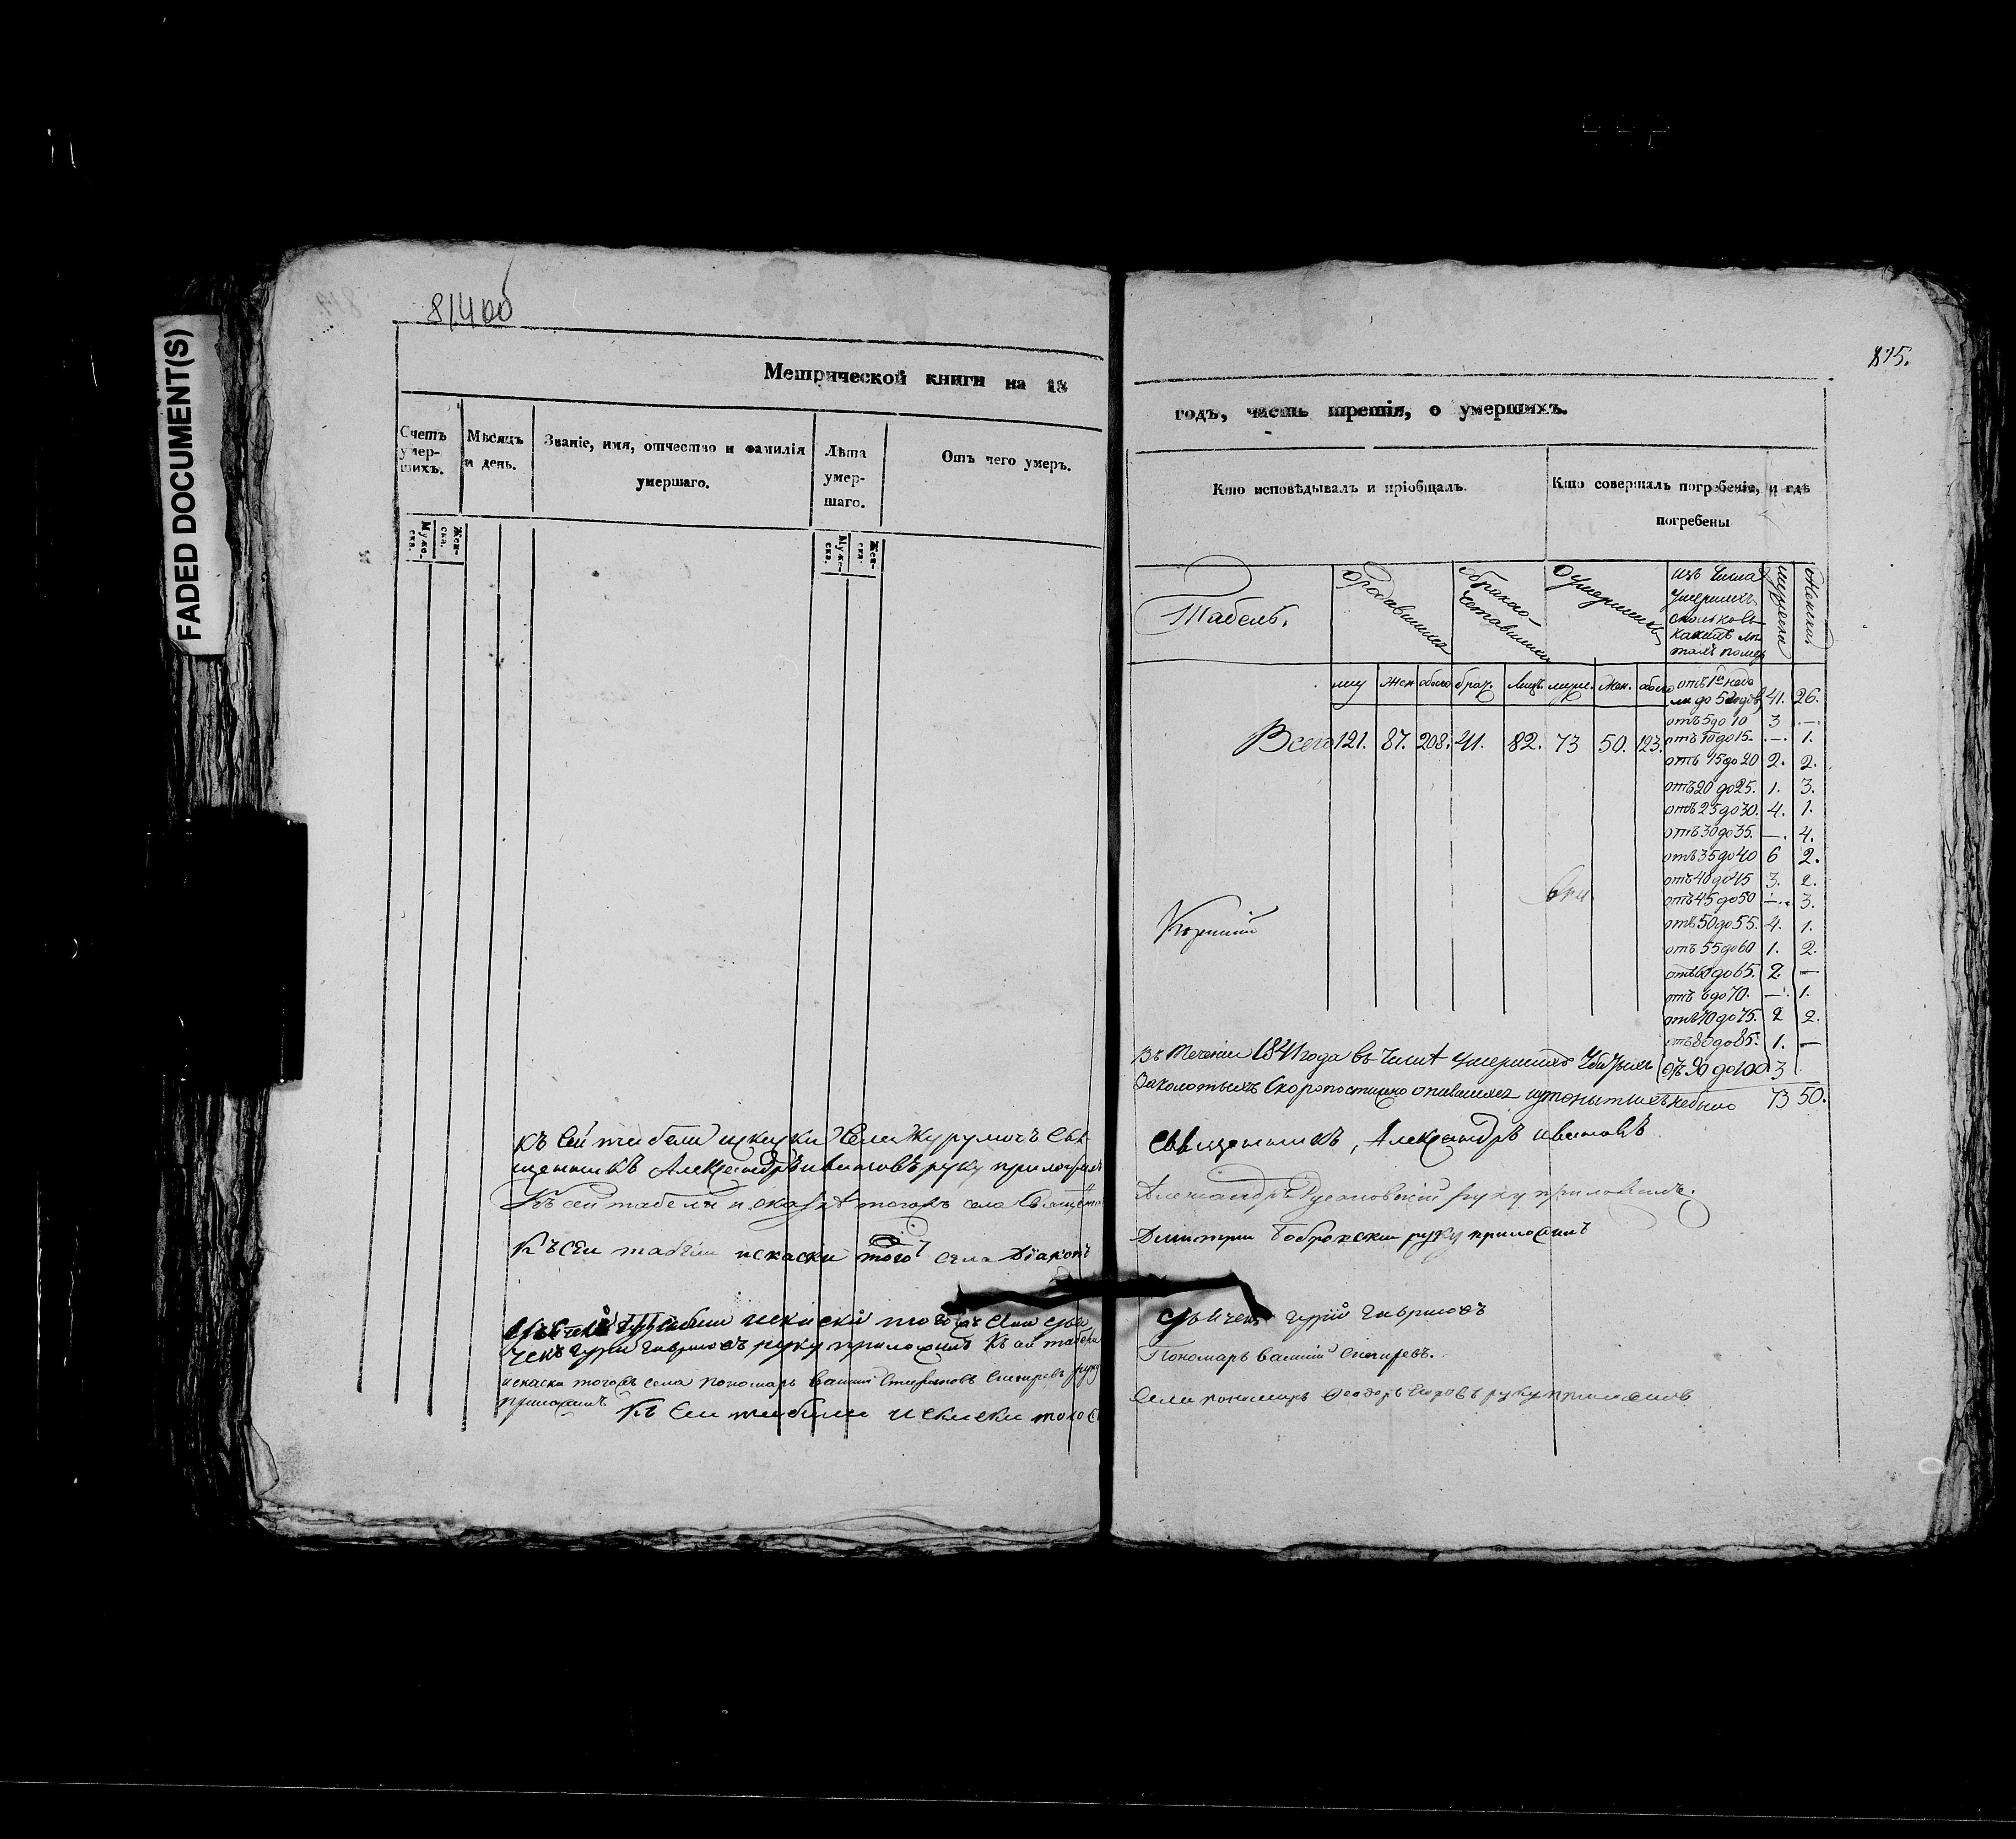 FADED DOCUMENT(S)
81400
Метрической книги на 18
Счетъ умер-шихъ.
Мѣсяцъ и день.
Званіе, имя, отчество и фамилія умершаго.
Лѣта умер-шаго.
Отъ чего умеръ.
Муже-ска.
Жен-ска.
Муже-ска.
Жен-ска.
Къ сей табели
щенникъ Александръ Ивановъ руку приложилъ
Къ сей табели и сказкѣ тогожъ села Священ
Къ сеи табели искаски того села Діаконъ
чекъ Гурій Гавриловъ руку приложилъ Къ сей табели
искаски тогожъ села пономарь Василій Снегиревъ руку
приложилъ
Къ сеи табели и скаски того
875.
годъ, часть третія, о умершихъ.
Кто исповѣдывалъ и пріобщалъ.
Кто совершалъ погребеніе, и гдѣ
погребены
Табель.
О родившихся
О бракосочетавшихся
О умершихъ
Изъ числа
умершихъ
сколько въ
какихъ лѣ
тахъ помер
мужеска
женска
муж жен обоего брач. Лицъ муж. Жен. обоего
отъ 1го неде
ли до 5 годовъ 41. 26.
отъ 5 до 10 3 —.
Всего 121. 87. 208. 41. 82. 73 50. 123.
отъ 10 до 15. —. 1.
отъ 15 до 20 2. 2.
отъ 20 до 25. 1. 3.
отъ 25 до 30. 4. 1.
отъ 30 до 35. —. 4.
отъ 35 до 40 6 2.
отъ 40 до 45 3. 2.
отъ 45 до 50 —. 3.
отъ 50 до 55. 4. 1.
отъ 55 до 60 1. 2.
отъ 60 до 65. 2. —
отъ 6 до 70. —. 1.
отъ 70 до 75. 2 2.
отъ 80 до 85. 1. —
отъ 90 до 100 3
73 50.
Въ теченіи 1841 года въ числѣ умершихъ
скоропостижно опившихся и утонутихъ небыло
Священникъ, Александръ Ивановъ
Александръ руку приложилъ.
Димитрий Бобровскии руку приложилъ
Гурій Гавриловъ
Пономарь Василий Снегиревъ.
Села пономарь Феодоръ руку приложилъ